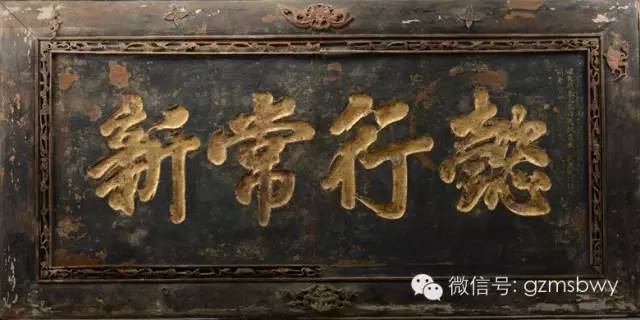 懿行常新
微信号: gzmsbwy